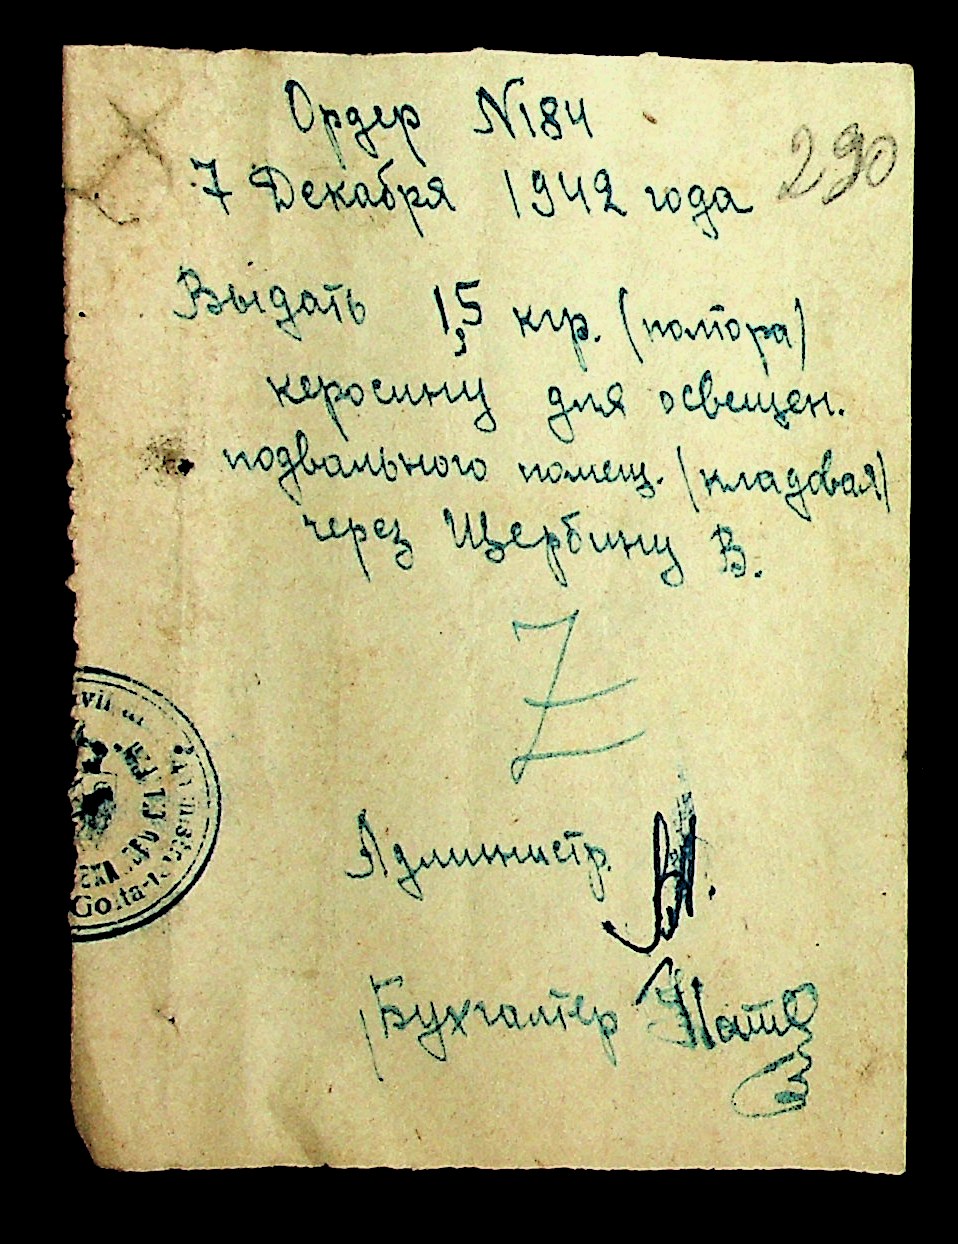 Ордер N184
290
7 Декабря 1942 года
Выдать 1,5 кгр. (полтора)
керосину для освещен.
подвального помещ. (кладовая)
через Щербину В.
Администр.
Бухгалтер